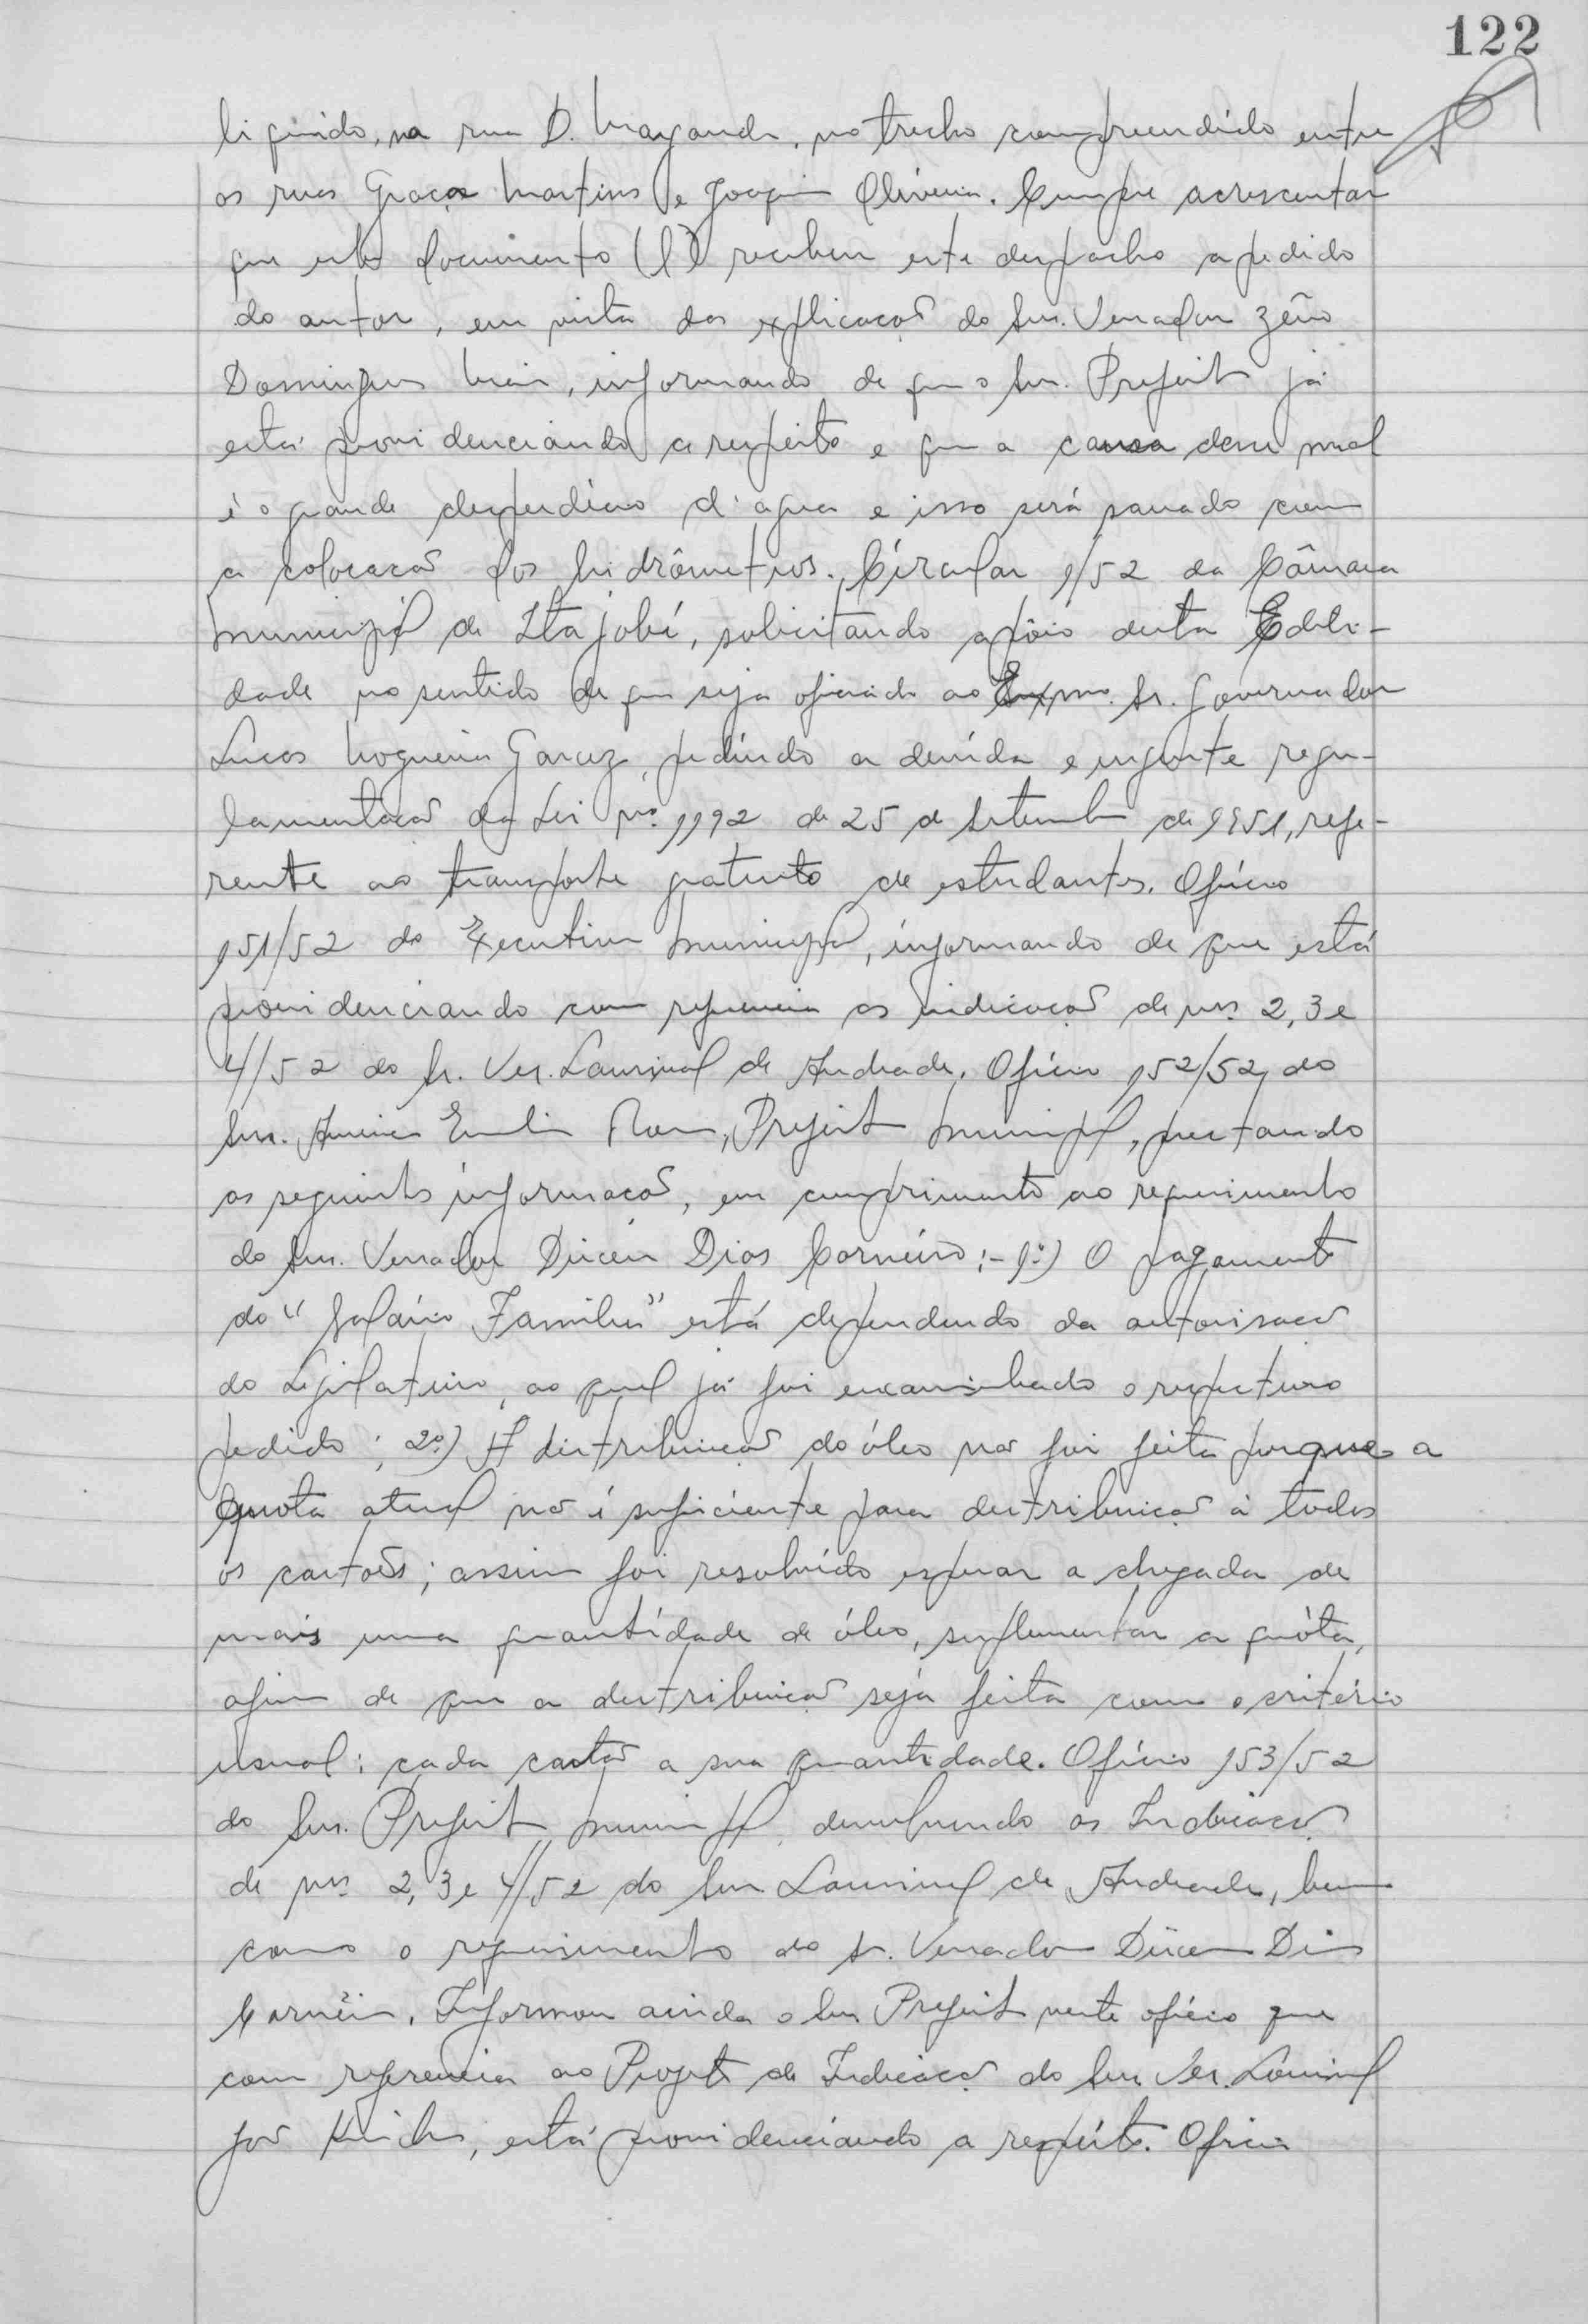 122
liquido, na rua D. Margarida, no trecho compreendido entre
as ruas Graça Martins e Joaquim Oliveira. Cumpre acrescentar
que este documento (1) recebeu este despacho a pedido
do autor, em vista das explicações do Snr. Vereador Zeno
Domingues Maia, informando de que o Snr. Prefeito já
está providenciando a respeito e que a causa desse mal
é o grande desperdício d'agua e isso será sanado com
a colocação dos hidrômetros. Circular 1/52 da Câmara
Municipal de Itajobí, solicitando apôio desta Edili-
dade no sentido de que seja oficiado ao Exmo. Sr. Governador
Lucas Nogueira Garcez, pedindo a devida e urgente regu-
lamentação da Lei nº. 1192 de 25 de Setembro de 1951, refe-
rente ao transporte gratuito de estudantes. Ofício
151/52 do Executivo Municipal, informando de que está
providenciando com referencia as indicações de nrs. 2, 3 e
4/52 do Sr. Ver. Laurival de Andrade. Ofício 152/52, do
Snr. Emilio, Prefeito Municipal, prestando
as seguintes informações, em cumprimento ao requerimento
do Snr. Vereador Dirceu Dias Carneiro:- 1º.) O pagamento
do "Salário Familia" está dependendo da autorisação
do Legislativo, ao qual já foi encaminhado o respectivo
pedido; 2º.) A distribuição do óleo não foi feita porque a
quota atual não é suficiente para distribuição à todos
os cartões; assim foi resolvido esperar a chegada de
mais uma quantidade de óleo, suplementar a quóta,
afim de que a distribuição seja feita com o critério
usual: cada cartão a sua quantidade. Ofício 153/52
do Snr. Prefeito Municipal, devolvendo as Indicações
de nrs. 2, 3 e 4/52 do Snr Laurival de Andrade, bem
como o requerimento do Sr. Vereador Dirceu Dias
Carneiro. Informou ainda o Snr Prefeito neste ofício que
com referencia ao Projeto de Indicação do Snr Ver. Laurival
José, está providenciando a respeito. Oficio